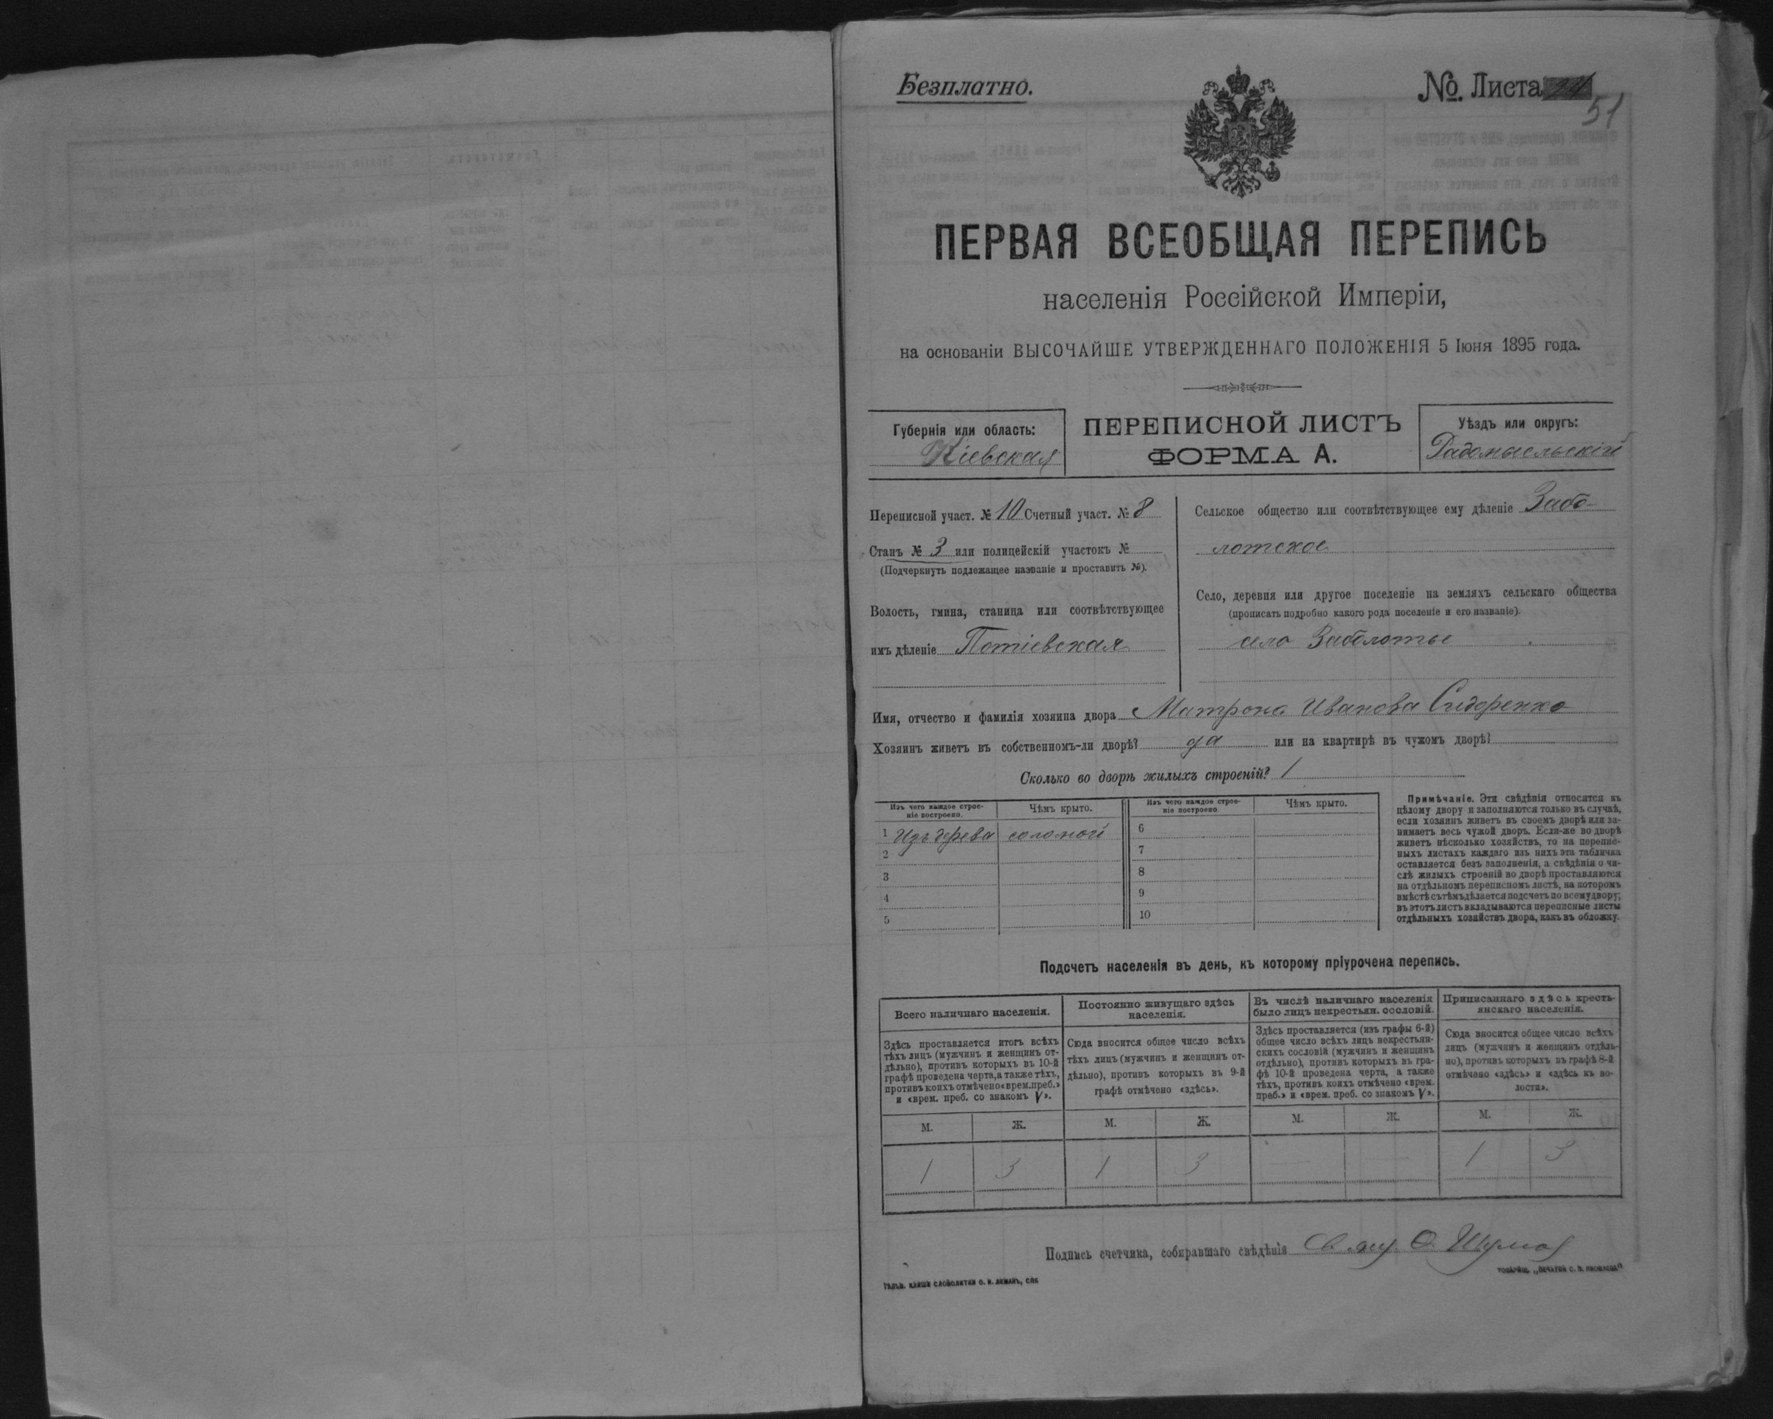 Безплатно.
№ Листа
51
ПЕРВАЯ ВСЕОБЩАЯ ПЕРЕПИСЬ
населенія Россійской Имперіи,
на основаніи ВЫСОЧАЙШЕ УТВЕРЖДЕННАГО ПОЛОЖЕНІЯ 5 Іюня 1895 года.
Губернія или область:
Кіевская
ПЕРЕПИСНОЙ ЛИСТЪ
ФОРМА А.
Уѣздъ или округъ:
Радомысльскій
Переписной участ. № 10 Счетный участ. № 8
Станъ № 3 или полицейскій участокъ №
(Подчеркнуть подлежащее названіе и проставить №).
Волость, гмина, станица или соотвѣтствующее
имъ дѣленіе Потіевская
Сельское общество или соотвѣтствующее ему дѣленіе Забо-
лотское
Село, деревня или другое поселеніе на земляхъ сельскаго общества
(прописать подробно какого рода поселеніе и его названіе)
село Заболотье
Имя, отчество и фамилія хозяина двора Матрона Иванова Сидоренко
Хозяинъ живетъ въ собственномъ-ли дворѣ? да или на квартирѣ въ чужомъ дворѣ?
Сколько во дворѣ жилыхъ строеній? 1
Изъ чего каждое строе-
ніе построено.
Чѣмъ крыто.
Изъ чего каждое строе-
ніе построено
Чѣмъ крыто.
1 Изъ дерева соломой
2
3
4
5
6
7
8
9
10
Примѣчаніе. Эти свѣдѣнія относятся къ
цѣлому двору и заполняются только въ случаѣ,
если хозяинъ живетъ въ своемъ дворѣ или за-
нимаетъ весь чужой дворъ. Если-же во дворѣ
живетъ нѣсколько хозяйствъ, то на перепис-
ныхъ листахъ каждаго изъ нихъ эта табличка
оставляется безъ заполненія, а свѣдѣнія о чи-
слѣ жилыхъ строеній во дворѣ проставляются
на отдѣльномъ переписномъ листѣ, на которомъ
вмѣстѣ съ тѣмъ дѣлается подсчетъ по всему двору;
въ этотъ листъ вкладываются переписные листы
отдѣльныхъ хозяйствъ двора, какъ въ обложку.
Подсчетъ населенія въ день, къ которому пріурочена перепись.
Всего наличнаго населенія.
Здѣсь проставляется итогъ всѣхъ
тѣхъ лицъ (мужчинъ и женщинъ от-
дѣльно), противъ которыхъ въ 10-й
графѣ проведена черта, а также тѣхъ,
противъ коихъ отмѣчено «врем. преб.»
и «врем. преб. со знакомъ V».
Постоянно живущаго здѣсь
населенія.
Сюда вносится общее число всѣхъ
тѣхъ лицъ (мужчинъ и женщинъ от-
дѣльно), противъ которыхъ въ 9-й
графѣ отмѣчено «здѣсь».
Въ числѣ наличнаго населенія
было лицъ некрестьян. сословій.
Здѣсь проставляется (изъ графы 6-й)
общее число всѣхъ лицъ некрестьян-
скихъ сословій (мужчинъ и женщинъ
отдѣльно), противъ которыхъ въ гра-
фѣ 10-й проведена черта, а также
тѣхъ, противъ коихъ отмѣчено «врем.
преб.» и «врем. преб. со знакомъ V».
Приписаннаго здѣсь кресть-
янскаго населенія.
Сюда вносится общее число всѣхъ
лицъ (мужчинъ и женщинъ отдѣль-
но), противъ которыхъ въ графѣ 8-й
отмѣчено «здѣсь» и «здѣсь въ во-
лости».
М. Ж. М. Ж. М. Ж. М. Ж.
1 3 1 3 — — 1 3
Подпись счетчика, собиравшаго свѣдѣнія